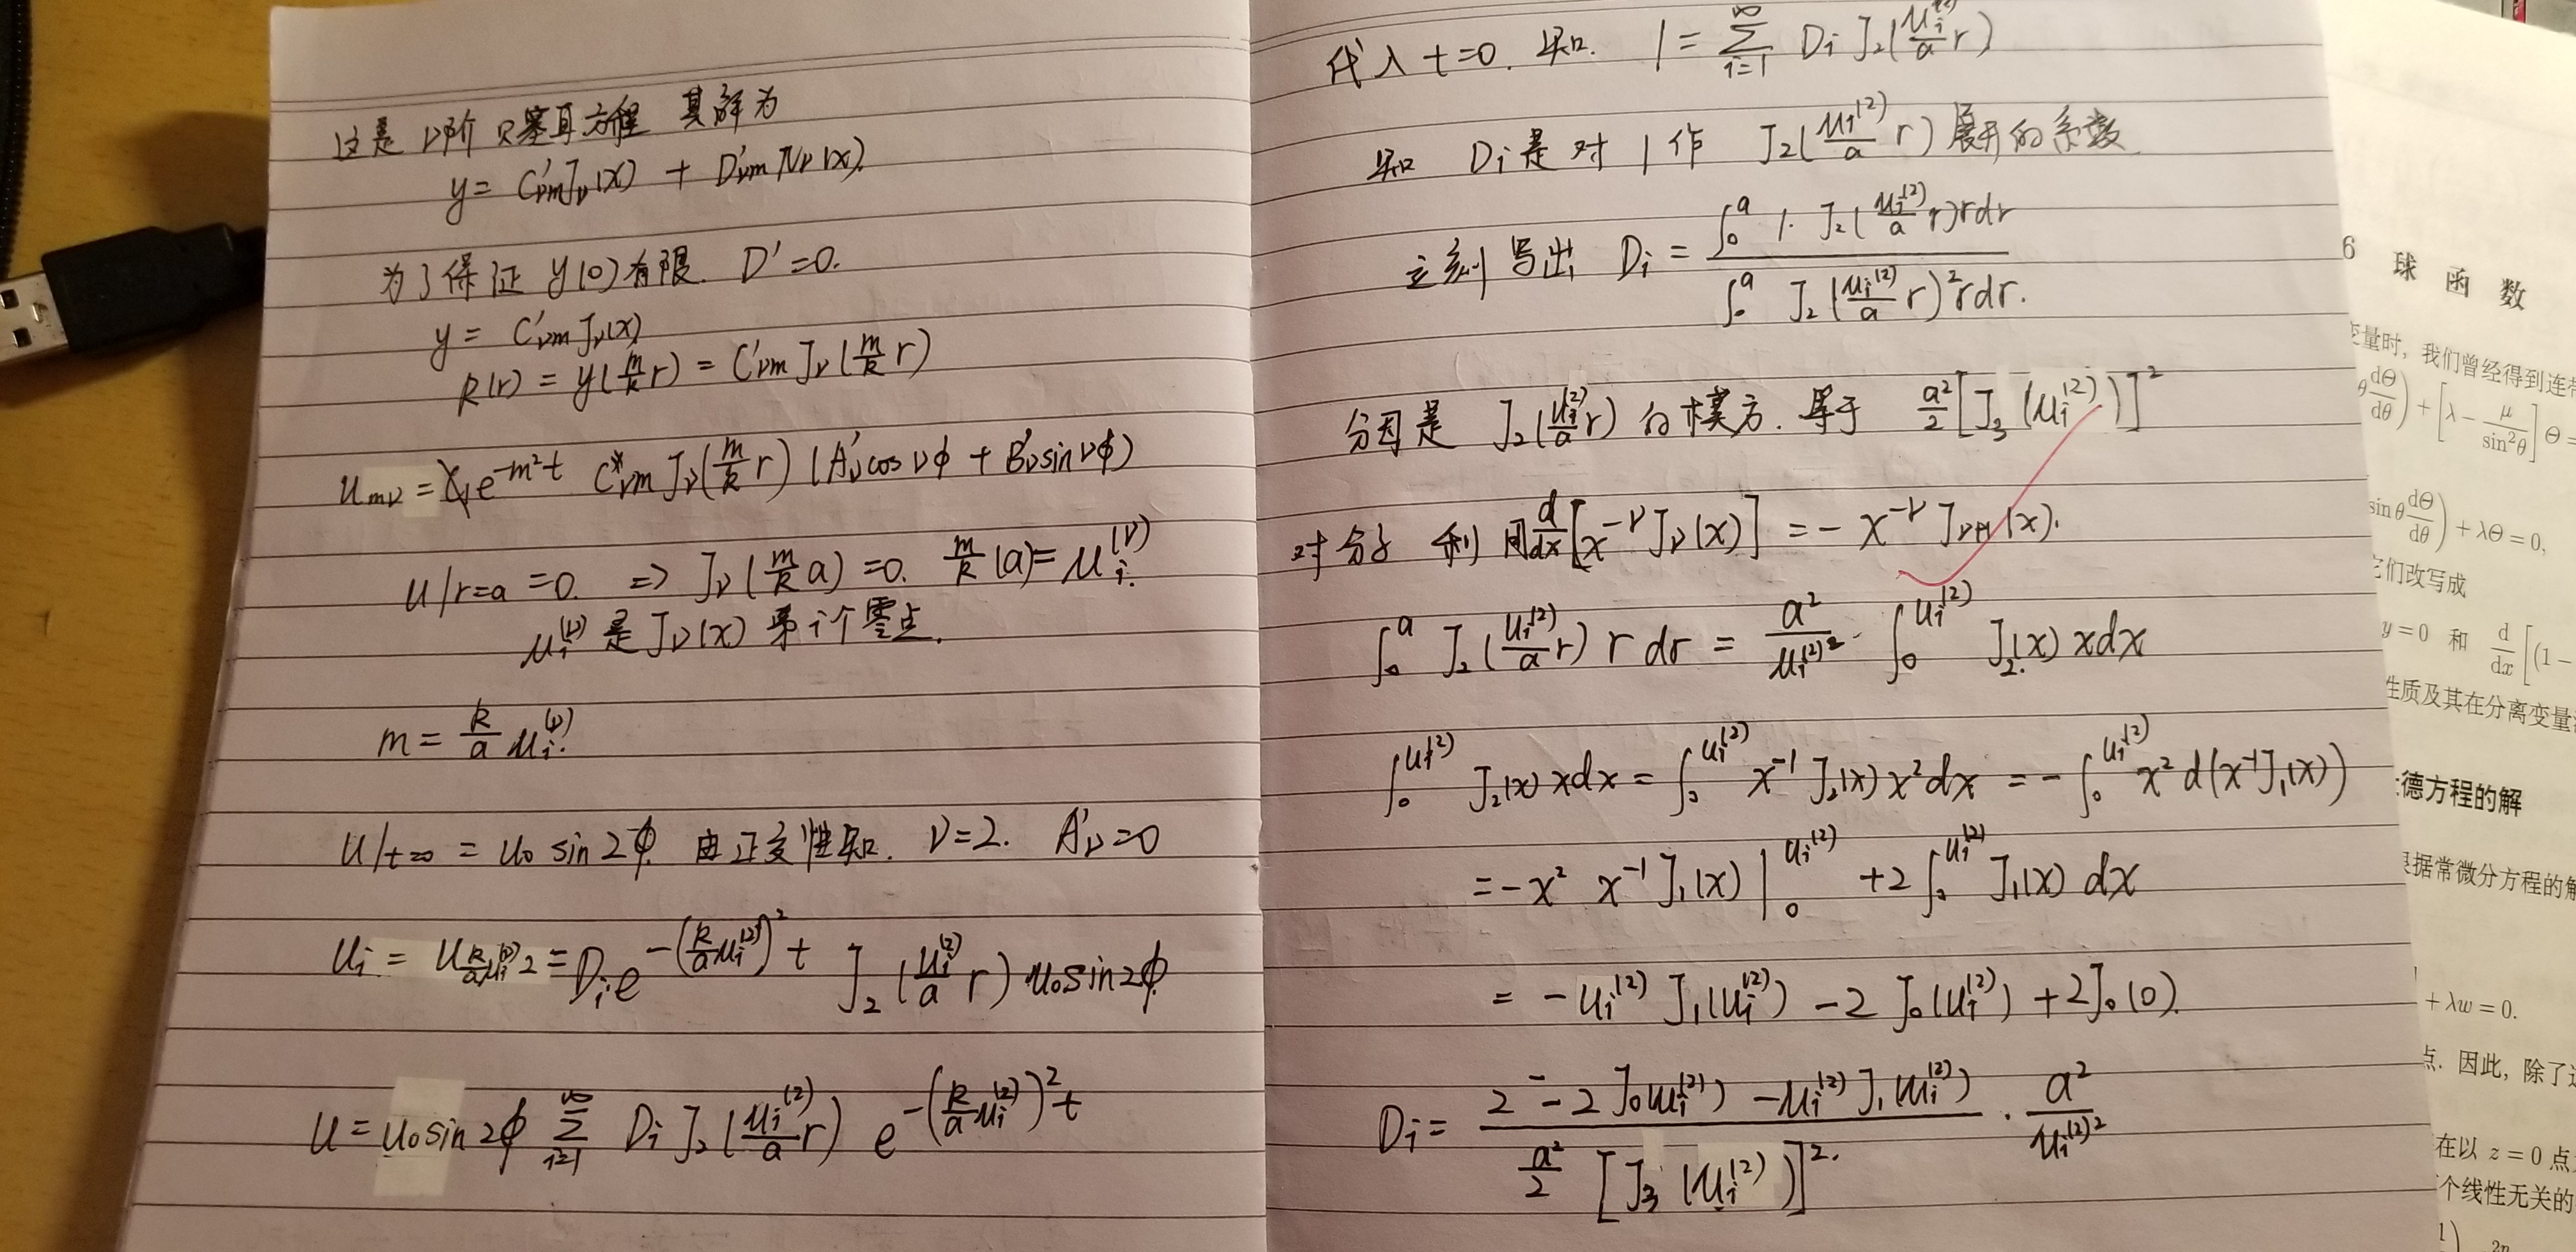 这是ν阶贝塞耳方程 其解为
y = C'νm Jν(x) + D'νm Nν(x).
为了保证 y(0)有限. D'=0.
y = C'νm Jν(x)
R(r) = y(m/k r) = C'νm Jν(m/k r)
u_mν = e^{-m²t} C*νm Jν(m/k r) (A'ν cosνϕ + B'ν sinνϕ)
u|r=a = 0. ⇒ Jν(m/k a) = 0. m/k (a) = μi^(ν).
μi^(ν) 是 Jν(x) 第 i 个零点.
m = k/a μi^(ν).
u|t=0 = u0 sin2ϕ. 由正交性知. ν=2. A'ν=0
ui = u_{k/a μi^(2) 2} = Di e^{-(k/a μi^(2))² t} J2(μi^(2)/a r) u0 sin2ϕ
u = u0 sin2ϕ ∑_{i=1}^{∞} Di J2(μi^(2)/a r) e^{-(k/a μi^(2))² t}
代入 t=0. 知. 1 = ∑_{i=1}^{∞} Di J2(μi^(2)/a r)
知 Di是对 1 作 J2(μi^(2)/a r) 展开的系数.
立刻写出 Di = ∫_0^a 1· J2(μi^(2)/a r) r dr / ∫_0^a J2(μi^(2)/a r)² r dr.
分因是 J2(μi^(2)/a r) 的模方. 等于 a²/2 [J3(μi^(2))]²
对分子 利用 d/dx[x^{-ν} Jν(x)] = - x^{-ν} Jν+1(x).
∫_0^a J2(μi^(2)/a r) r dr = a²/μi^(2)² · ∫_0^{μi^(2)} J2(x) x dx
∫_0^{μi^(2)} J2(x) x dx = ∫_0^{μi^(2)} x^{-1} J2(x) x² dx = - ∫_0^{μi^(2)} x² d(x^{-1} J1(x))
= - x² x^{-1} J1(x) |_0^{μi^(2)} + 2∫_0^{μi^(2)} J1(x) dx
= - μi^(2) J1(μi^(2)) - 2 J0(μi^(2)) + 2J0(0).
Di = (2 - 2J0(μi^(2)) - μi^(2) J1(μi^(2))) / (a²/2 [J3(μi^(2))]²) · a²/μi^(2)²
6 球函数
变量时, 我们曾经得到连带
θ dΘ/dθ) + [λ - μ/sin²θ] Θ =
sinθ dΘ/dθ) + λΘ = 0,
它们改写成
y = 0 和 d/dx [(1 -
性质及其在分离变量
德方程的解
根据常微分方程的解
+ λw = 0.
点. 因此, 除了
在以 z = 0 点
个线性无关的